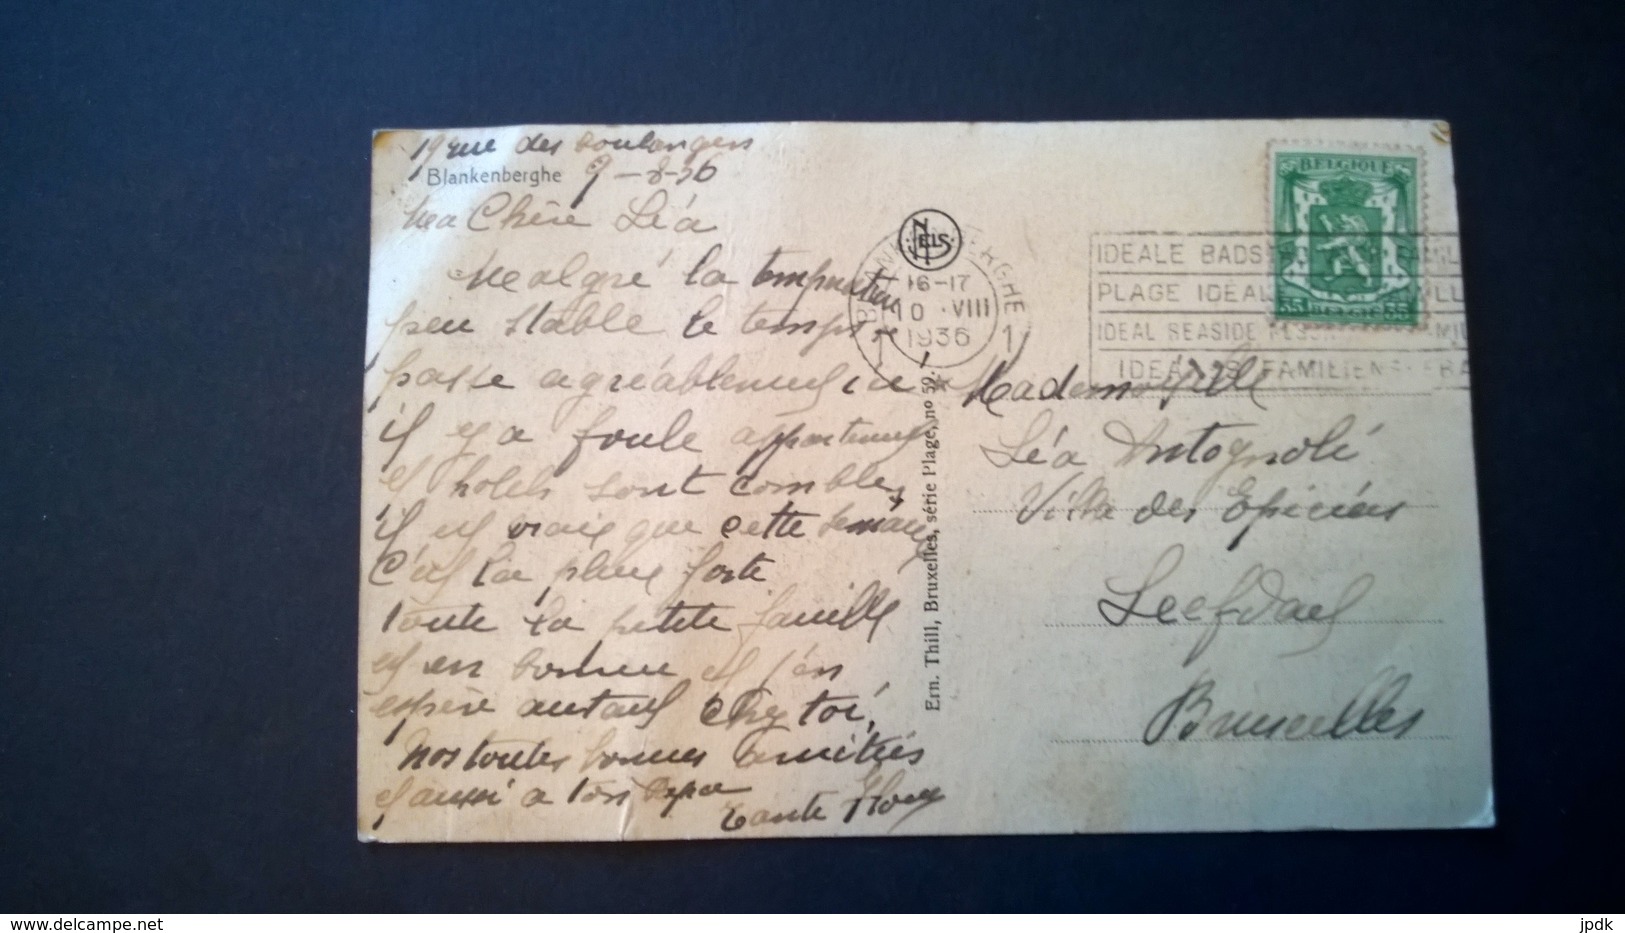 19 rue des boulangers
Blankenberghe 9-8-36
Ma Chère Léa
Malgré la température
peu stable le temps se
passe agréablement ici
il y a foule appartement
et hotels sont combles
il est vrai que cette semaine
c'est la plus forte
toute la petite famille
est en bonheur et j'en
espère autant chez toi,
nos toutes bonnes amitiés
et aussi a ton papa
Tante Flory
NELS
BLANKENBERGHE
16-17
10 VIII
1936
1 1
Ern. Thill, Bruxelles, série Plage, no 59.
BELGIQUE
35 BELGIE 35
IDEALE BADS
PLAGE IDEAL
IDEAL SEASIDE RESOR
IDEALES FAMILIEN
Mademoiselle
Léa Antognoli
Villa des Epicéas
Leefdael
Bruxelles
www.delcampe.net
jpdk